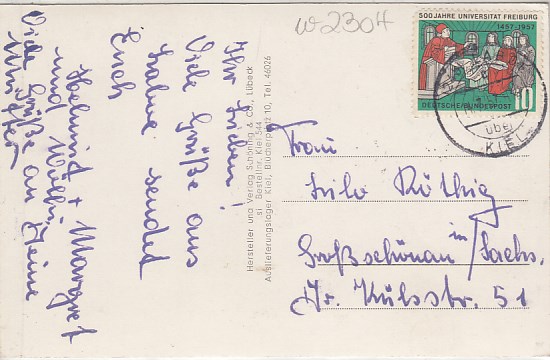 w 2304
500 JAHRE UNIVERSITÄT FREIBURG
1457-1957
DEUTSCHE BUNDESPOST
10
über
KIEL
Ihr Lieben!
Viele Grüße aus
sendet
Euch
Helmut + Margret
und
Viele Grüße an Heine
Hersteller und Verlag Schöning & Co., Lübeck
si Bestellnr. Kiel 544
Auslieferungslager Kiel, Blücherplatz 10, Tel. 46026
Frau
Röthig
Großschönau in/Sachs.
Str. 51